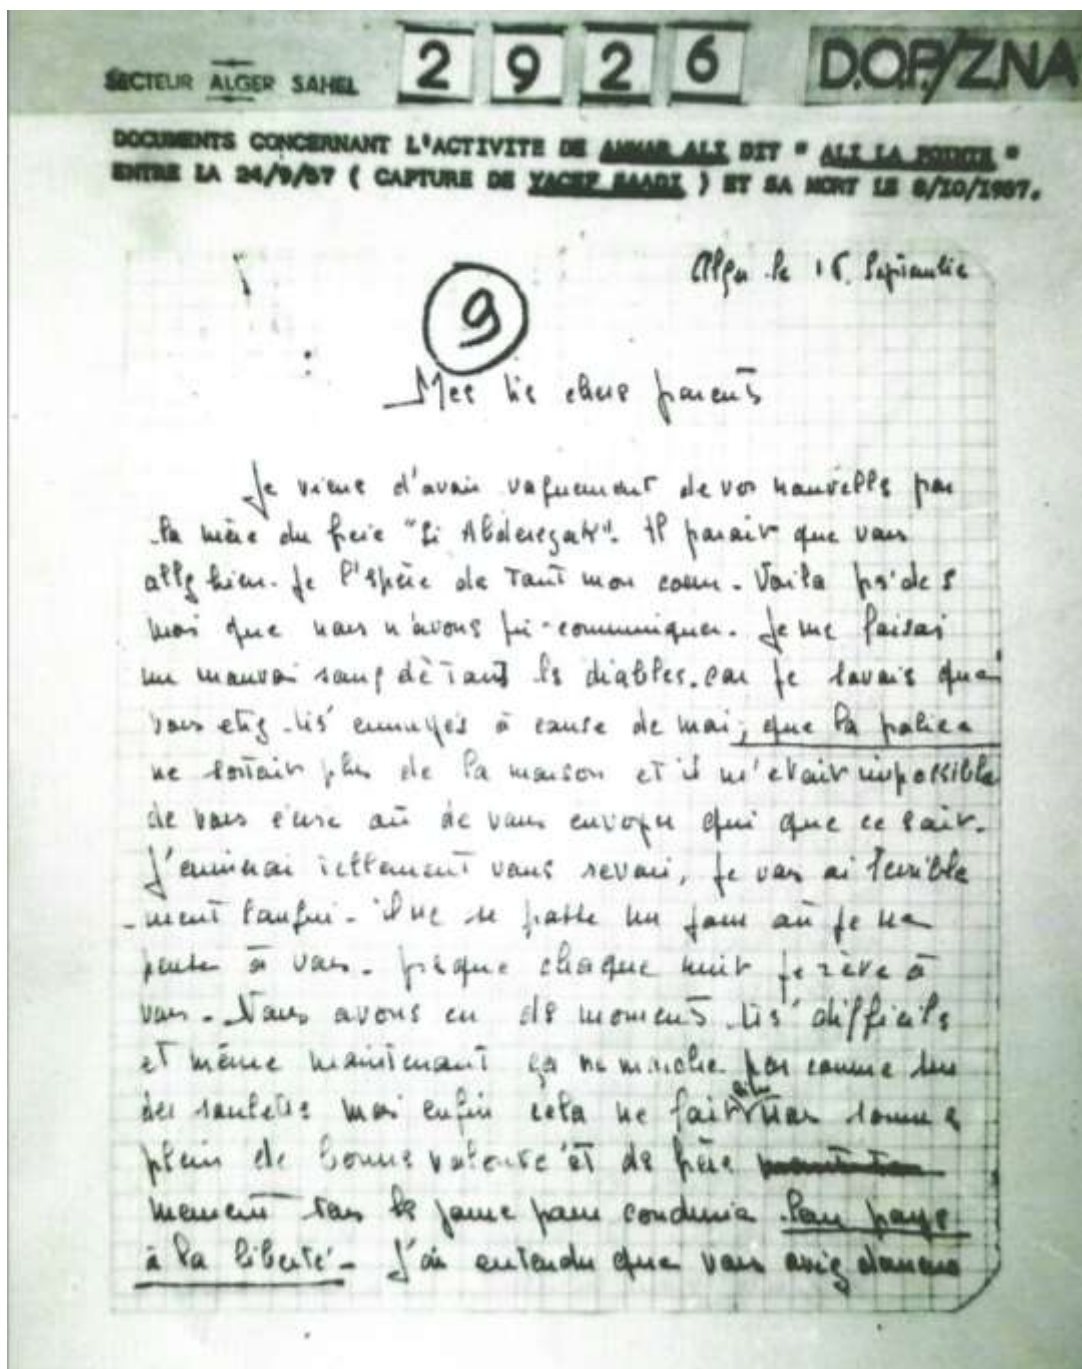 SECTEUR ALGER SAHEL
2926
D.O.P/ZNA
DOCUMENTS CONCERNANT L'ACTIVITE DE AMMAR ALI DIT " ALI LA POINTE "
ENTRE LA 24/9/57 ( CAPTURE DE YACEF SAADI ) ET SA MORT LE 8/10/1957.
Alger le 15 Septembre
9
Mes très chers parents
Je viens d'avoir vaguement de vos nouvelles par
la mère du frère "Si Abderezak". Il parait que vous
allez bien. Je l'espère de tout mon coeur. Voila près de 5
mois que nous n'avons pu communiquer. Je me faisai
un mauvai sang de tous ls diables. car je savais que
vous etiez très ennuyés à cause de moi, que la police
ne sortait plus de la maison et il m'etait impossible
de vous ecrire où de vous envoyer qui que ce soit.
J'aimerai tellement vous revoir, je vous ai terrible
-ment langui. il ne se passe un jour où je ne
pense à vous. presque chaque nuit je rève à
vous. Nous avons eu ds moments très difficils
et même maintenant ça ne marche pas comme sur
des roulettes mai enfin cela ne fait nous somme
plein de bonne volonté et de frère
meurent tous ls jours pour conduire leur pays
à la liberté. J'ai entendu que vous aviez